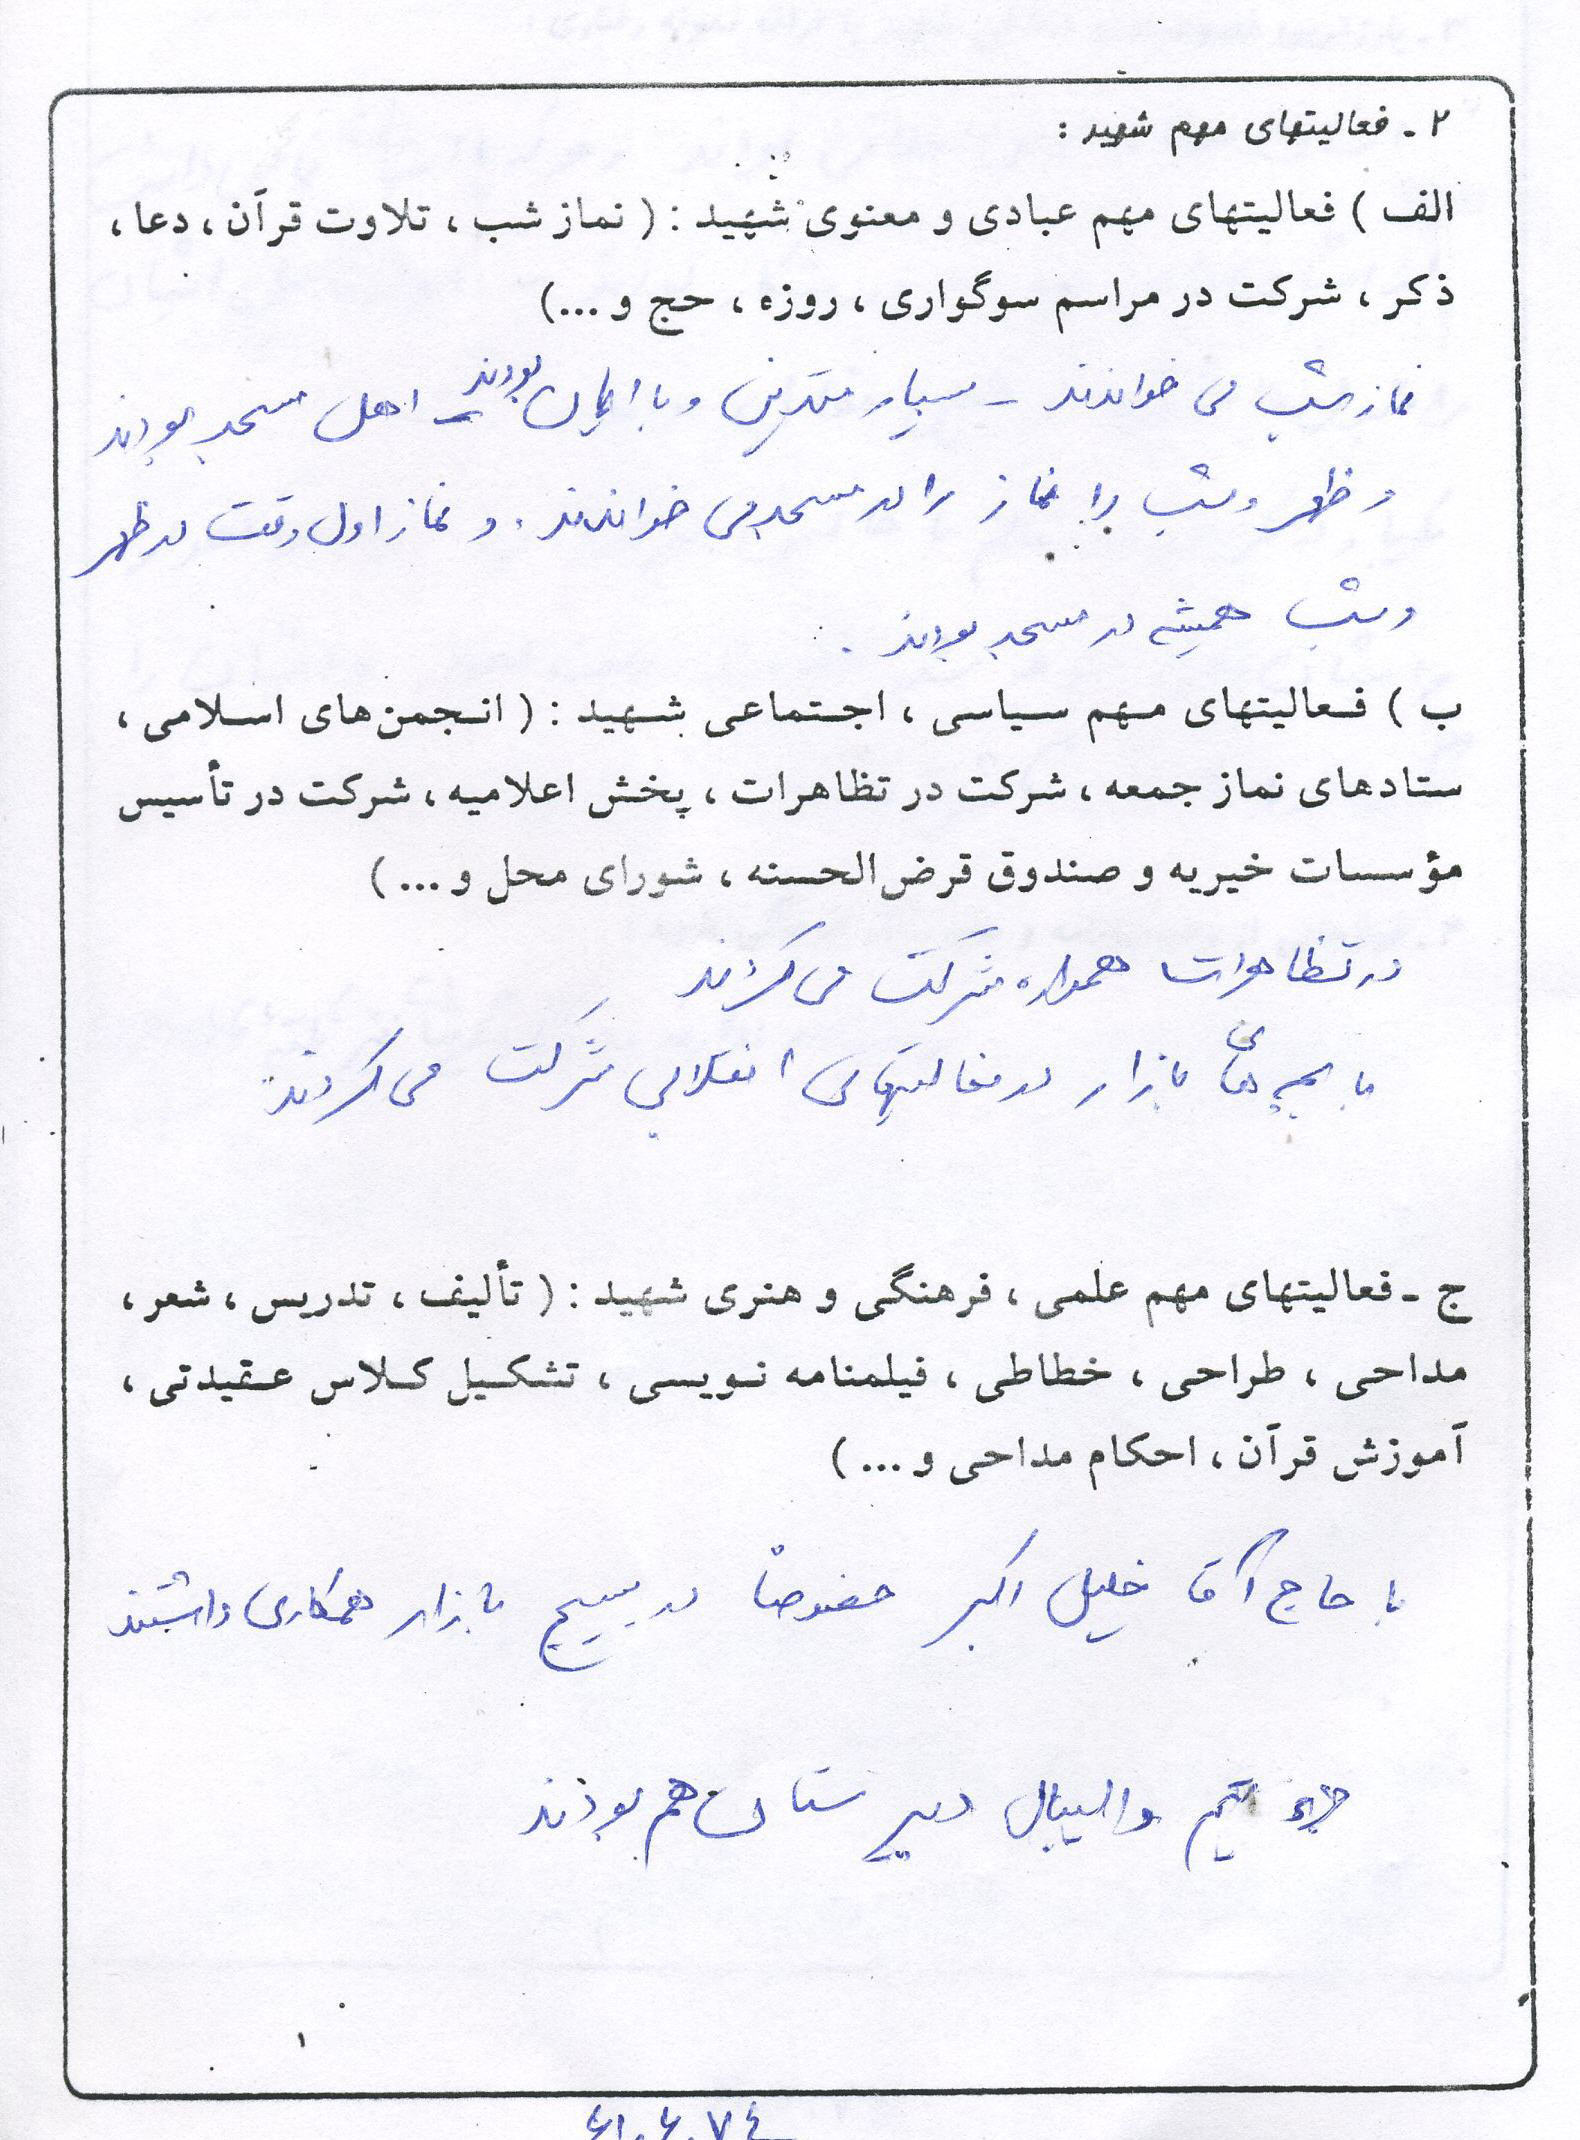 ۲ ـ فعالیتهای مهم شهید :
الف ) فعالیتهای مهم عبادی و معنوی شهید : ( نماز شب ، تلاوت قرآن ، دعا ،
ذکر ، شرکت در مراسم سوگواری ، روزه ، حج و ...)
نماز شب می خواندند - بسیار متدین و با ایمان بودند - اهل مسجد بودند
و ظهر و شب را نماز را در مسجد می خواندند . و نماز اول وقت در ظهر
و شب همیشه در مسجد بودند .
ب ) فعالیتهای مهم سیاسی ، اجتماعی شهید : ( انجمن‌های اسلامی ،
ستادهای نماز جمعه ، شرکت در تظاهرات ، پخش اعلامیه ، شرکت در تأسیس
مؤسسات خیریه و صندوق قرض‌الحسنه ، شورای محل و ... )
در تظاهرات همواره شرکت می کردند
با بچه های بازار در فعالیتهای انقلابی شرکت می کردند
ج ـ فعالیتهای مهم علمی ، فرهنگی و هنری شهید : ( تألیف ، تدریس ، شعر ،
مداحی ، طراحی ، خطاطی ، فیلمنامه نویسی ، تشکیل کلاس عقیدتی ،
آموزش قرآن ، احکام مداحی و ... )
با حاج آقا خلیل اکبر خصوصاً در بسیج بازار همکاری داشتند
جزء تیم والیبال دبیرستان هم بودند
۱